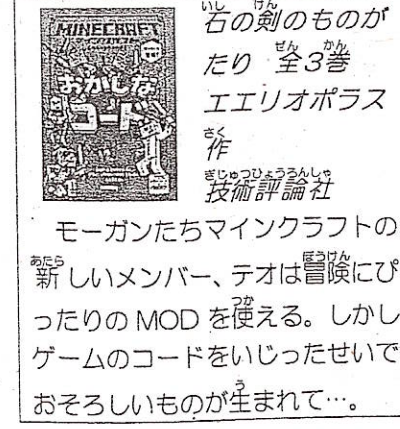 MINECRAFT
おかしな
コード
石の剣のものが
たり 全3巻
エエリオポラス
作
技術評論社
モーガンたちマインクラフトの
新しいメンバー、テオは冒険にぴ
ったりの MOD を使える。しかし
ゲームのコードをいじったせいで
おそろしいものが生まれて…。